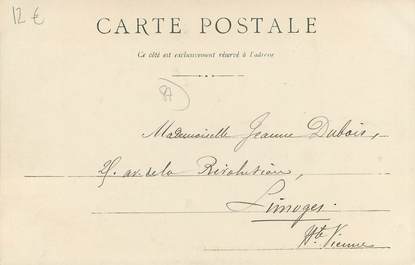 12 €
CARTE POSTALE
Ce côté est exclusivement réservé à l'adresse
Mademoiselle Jeanne Dubois,
av. de la Révolution,
Limoges.
Hte Vienne